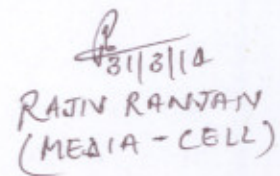 31/3/14
RAJIV RANJAN
(MEDIA-CELL)